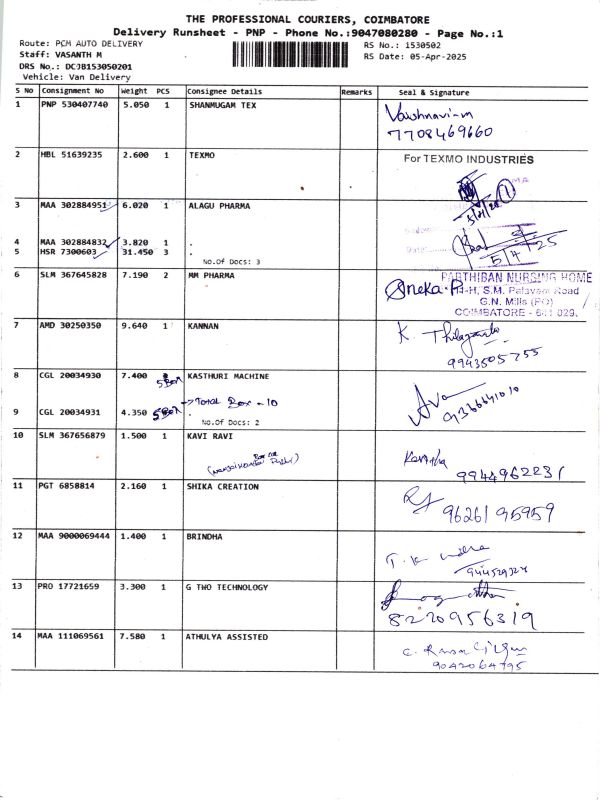 THE PROFESSIONAL COURIERS, COIMBATORE
Delivery Runsheet - PNP - Phone No.:9047080280 - Page No.:1
Route: PCM AUTO DELIVERY RS No.: 1530502
Staff: VASANTH M RS Date: 05-Apr-2025
DRS No.: DCJB153050201
Vehicle: Van Delivery
S No Consignment No Weight PCS Consignee Details Remarks Seal & Signature
1 PNP 530407740 5.050 1 SHANMUGAM TEX Vaishnavi-m
7708469660
2 HBL 51639235 2.600 1 TEXMO For TEXMO INDUSTRIES
3 MAA 302884951 6.020 1 ALAGU PHARMA
4 MAA 302884832 3.820 1 .
5 HSR 7300603 31.450 3 . 5/4/25
No.Of Docs: 3
6 SLM 367645828 7.190 2 MM PHARMA PARTHIBAN NURSING HOME
Sneka.P S.M. Palavani Road
G.N. Mills (PO)
COIMBATORE - 641 029.
7 AMD 30250350 9.640 1 KANNAN K.
9943505755
8 CGL 20034930 7.400 5 Box KASTHURI MACHINE
→ Total Box - 10
9 CGL 20034931 4.350 5 Box . 9366641010
No.Of Docs: 2
10 SLM 367656879 1.500 1 KAVI RAVI Kavitha
9944962231
11 PGT 6858814 2.160 1 SHIKA CREATION
9626195959
12 MAA 9000069444 1.400 1 BRINDHA
13 PRO 17721659 3.300 1 G TWO TECHNOLOGY
8220956319
14 MAA 111069561 7.580 1 ATHULYA ASSISTED
9042064795